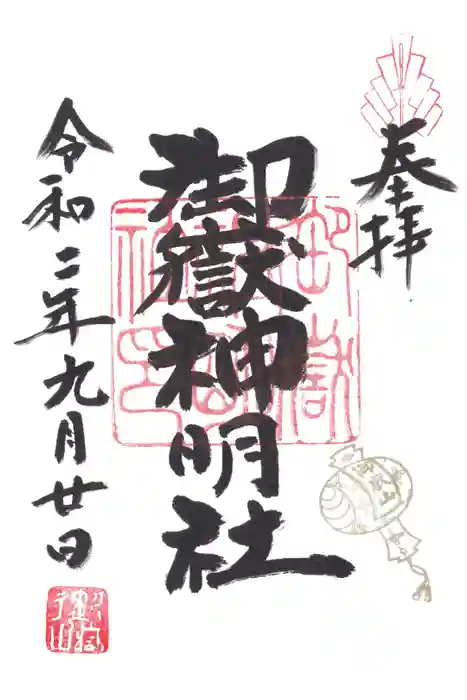 奉拝
御嶽神明社
令和二年九月廿日